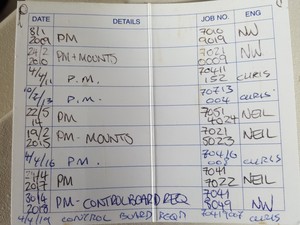 DATE DETAILS JOB NO. ENG
8/1 7016
2009 PM 9019 NW
24/2 7021
2010 PM + MOUNTS 0009 NW
4/4/11 70411
P.M. 152 CHRIS
10/2/13 70713
P.M. 004 CHRIS
22/5 7051
14 PM 4024 NEIL
19/2 7021
2015 PM - MOUNTS 5023 NEIL
4/4/16 P.M. 70416
002 CHRIS
7041
2017 PM 7022 NEIL
30/4 7041
2018 PM - CONTROL BOARD REQ 8049 NW
4/4/19 CONTROL BOARD REQD 70419007 CHRIS